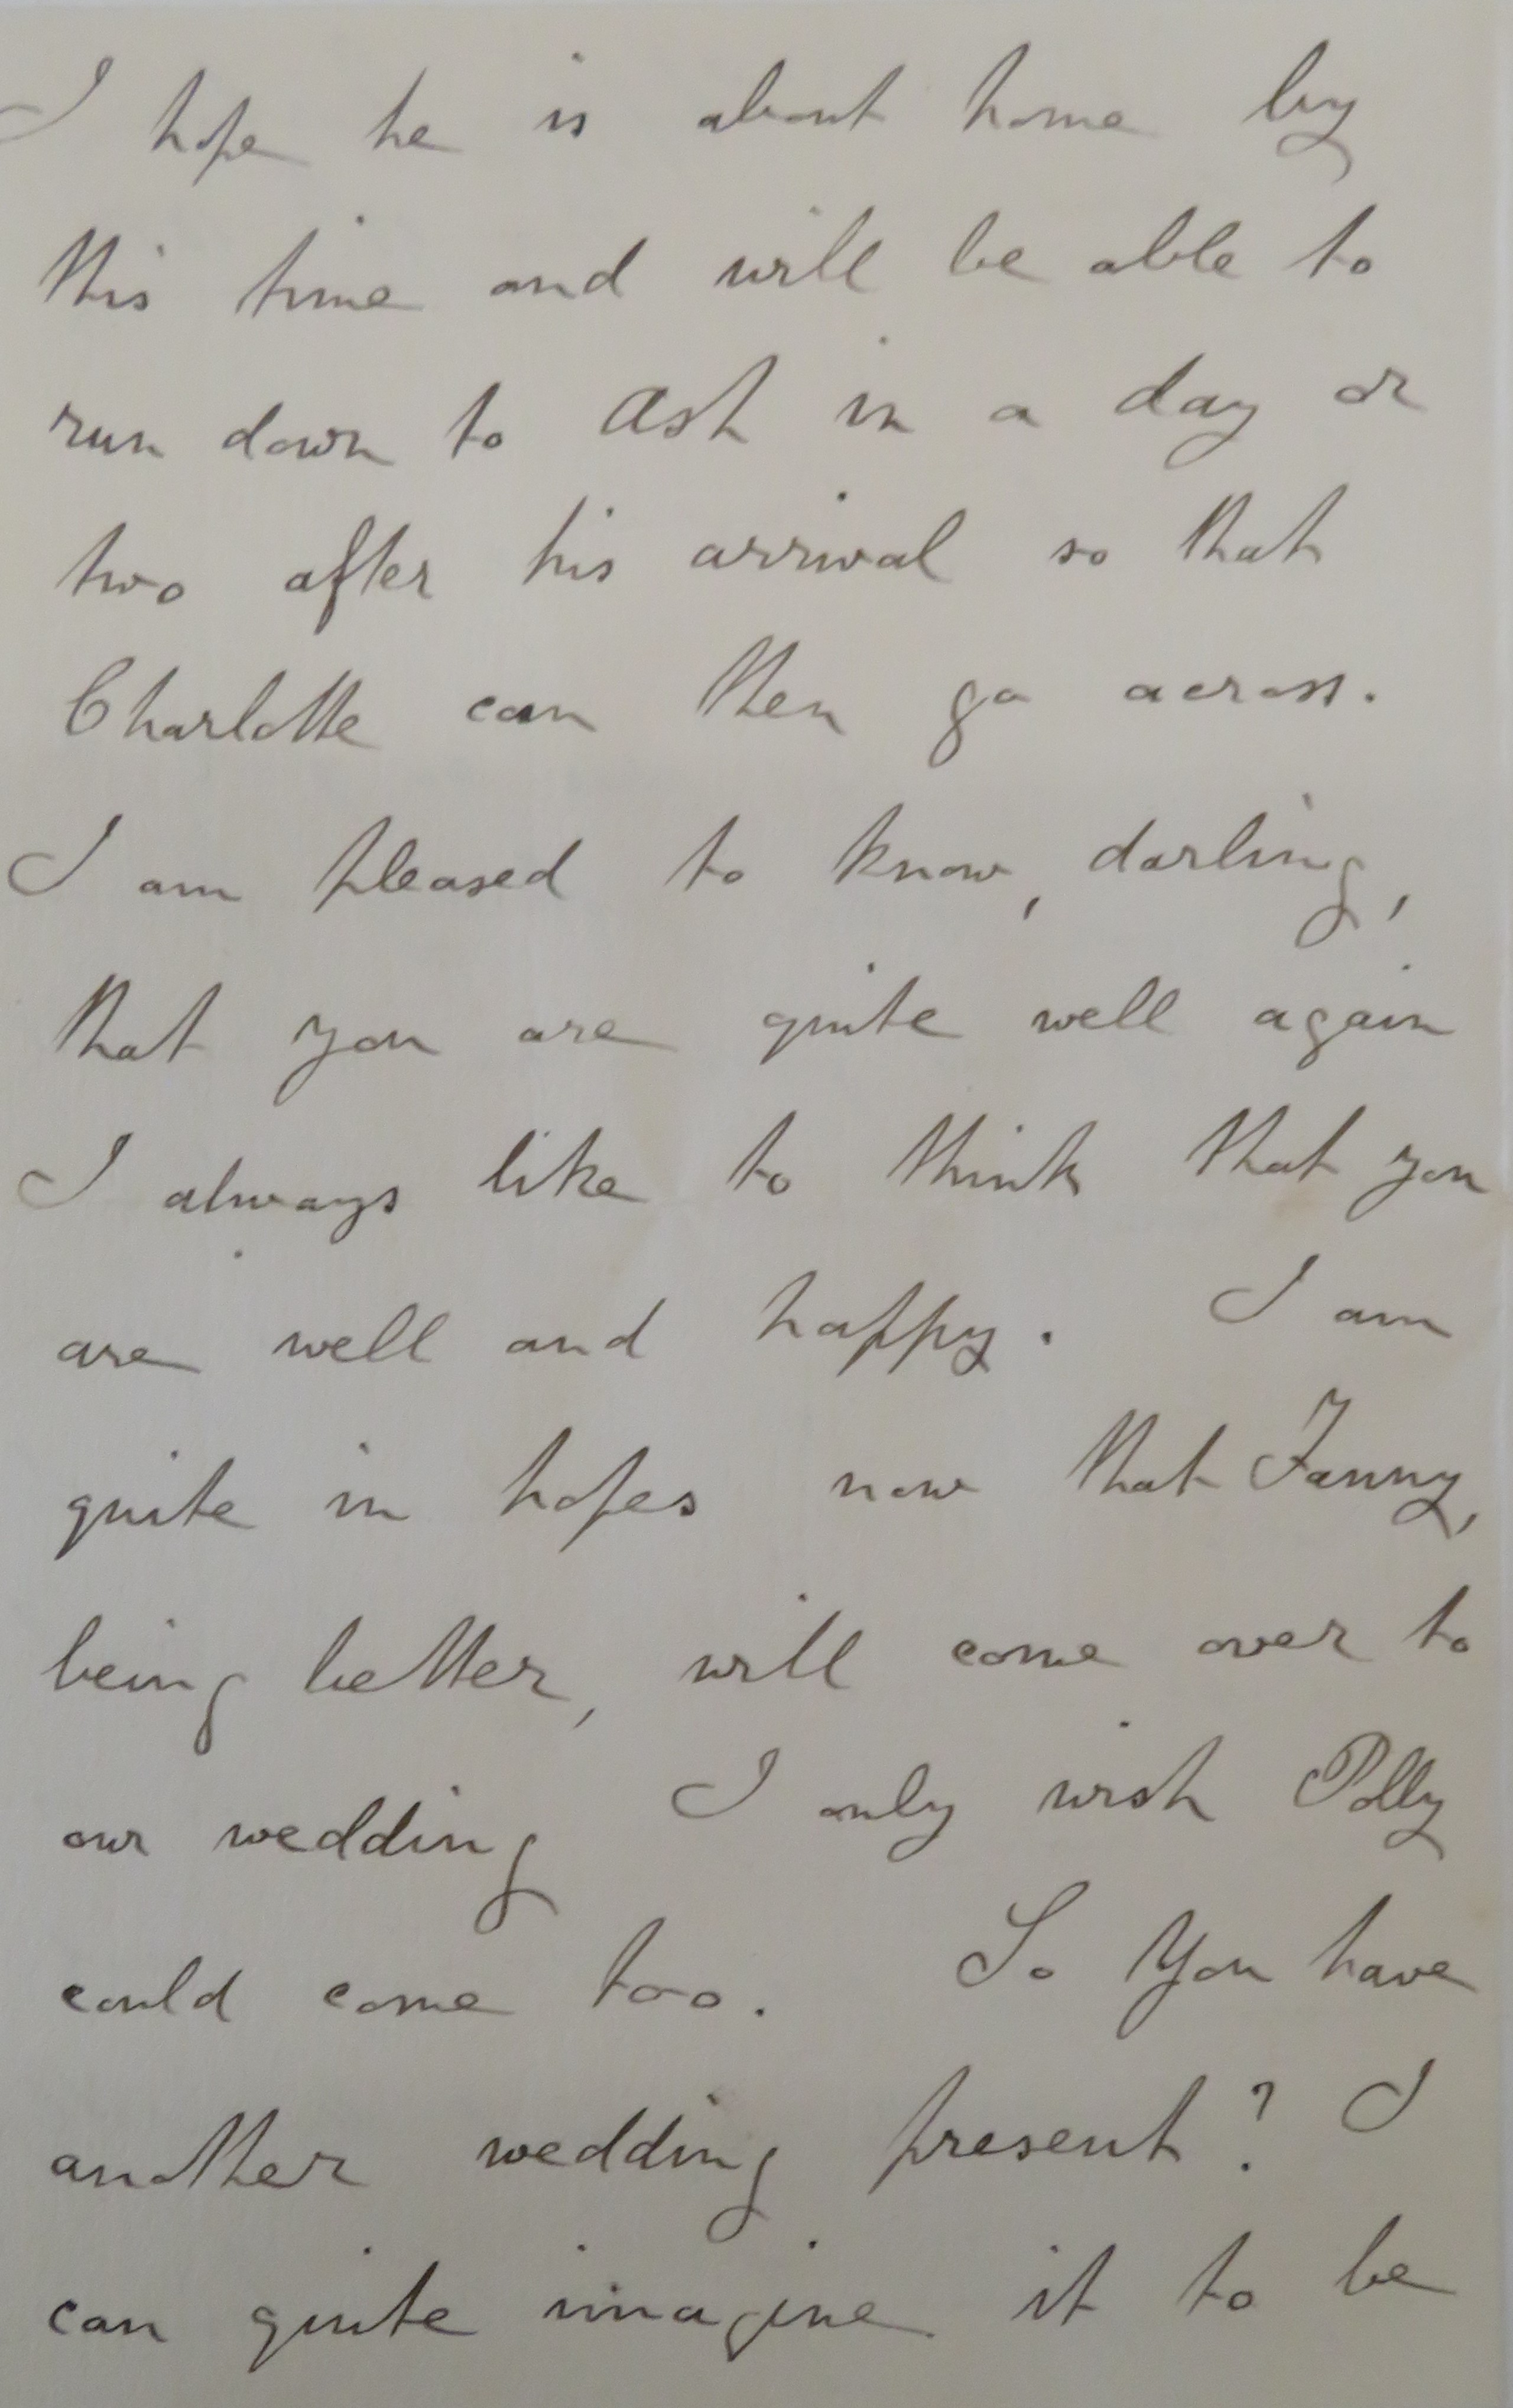 I hope he is about home by
this time and will be able to
run down to Ash in a day or
two after his arrival so that
Charlotte can then go across.
I am pleased to know, darling,
that you are quite well again
I always like to think that you
are well and happy. I am
quite in hopes now that Fanny,
being better, will come over to
our wedding I only wish Polly
could come too. So You have
another wedding present? I
can quite imagine it to be